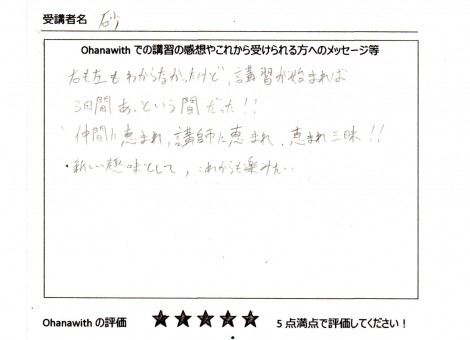 受講者名 砂
Ohanawith での講習の感想やこれから受けられる方へのメッセージ等
右も左もわからなかったけど、講習が始まれば
3日間あっという間だった!!
仲間に恵まれ、講師に恵まれ、恵まれ三昧!!
・新しい趣味として、これからも楽みたい…
Ohanawith の評価 ★★★★★ 5 点満点で評価してください!